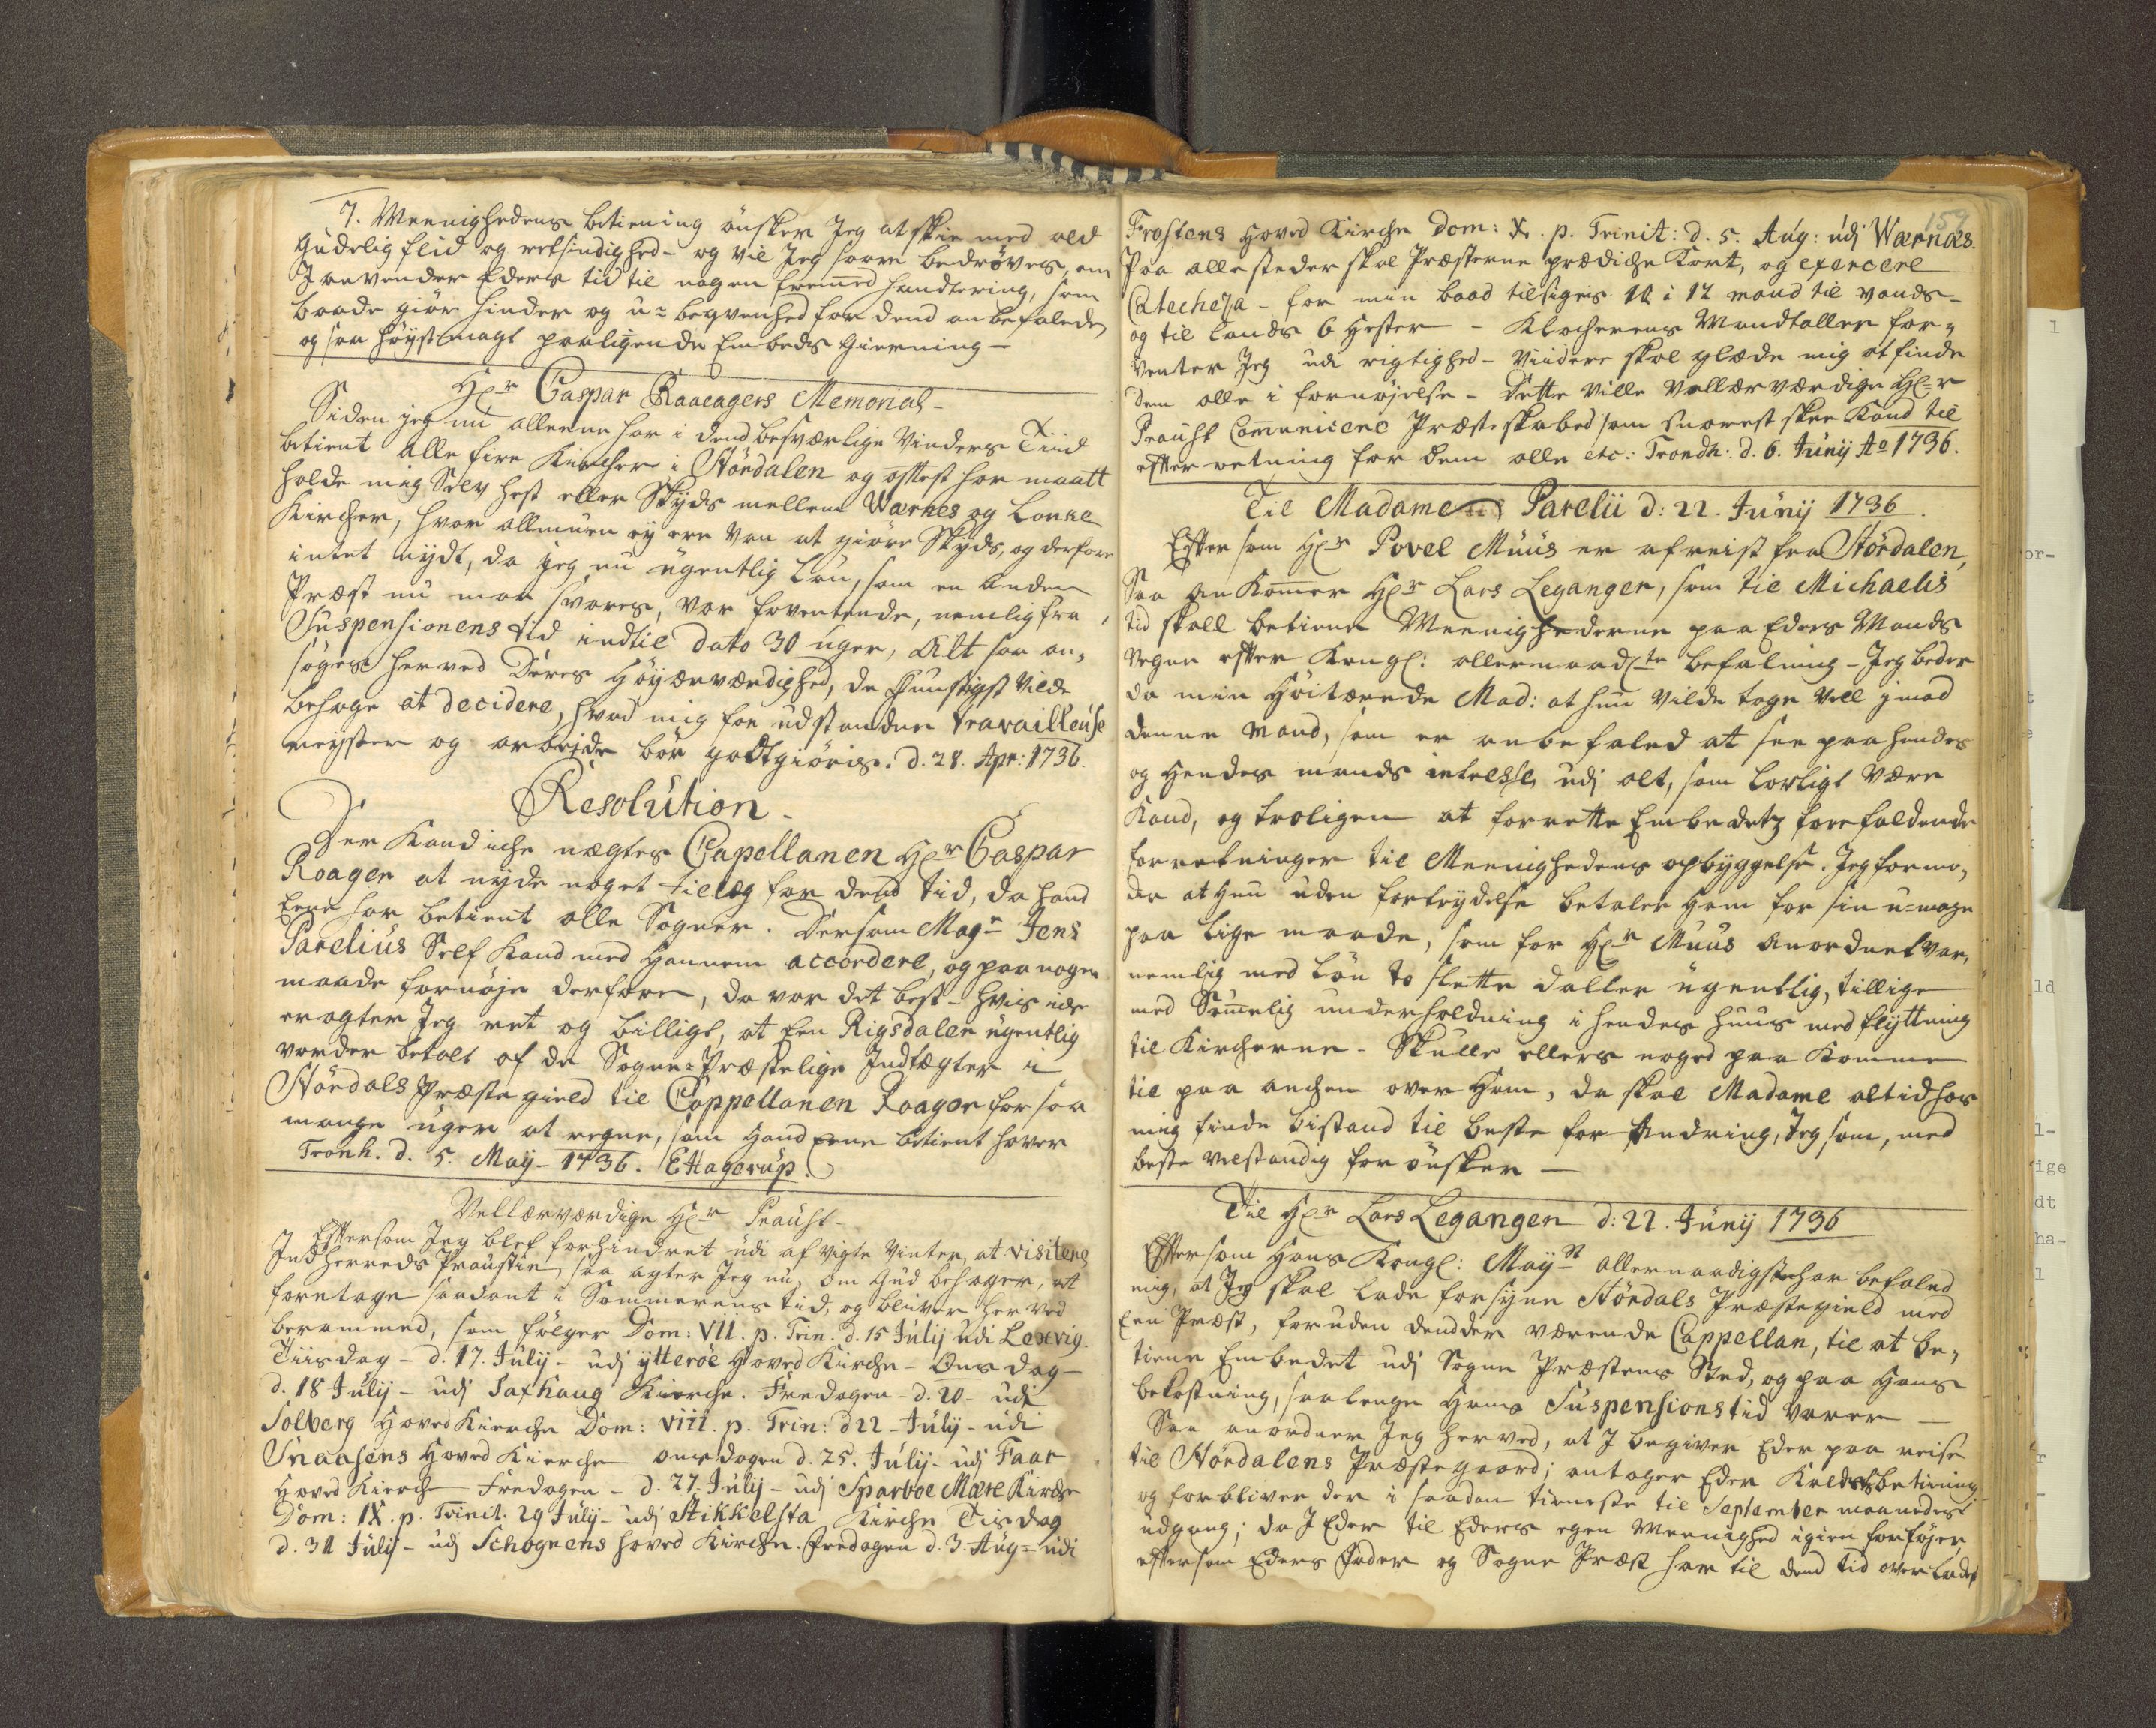 7. Meenighedens betiening ønsker Jeg at skie med ald
Gudelig flid og retsindighed - og vil Jeg saare bedrøves, om
I anvender Eders tid til nogen fremmed handtering, som
baade giør hinder og u-beqvemhed for dend anbefalede,
og saa høyst magt paaligende Embeds gierning -
Hr Caspar Raaeagers Memorial -
Siden jeg nu alleene har i dend besværlige Vinders Tiid
betient alle fire Kircher i Størdalen og oftest har maatt
holde mig Selv hest eller Skyds mellem Wærnes og Lonke
Kircher, hvor allmuen ey ere van at giøre Skyds, og derfore
intet nydt, da jeg nu ugentlig løn, som en anden
Præst nu maa svares, var forventende, nemlig fra
Suspensionens tid indtil dato 30 uger, Alt saa an-
søges herved Deres Høyærværdighed, de Gunstigst vilde
behage at decidere, hvad mig for udstandne travailleuse
reyser og arbejde bør godtgiøris. d. 28. Apr: 1736.
Resolution -
Der Kand iche nægtes Capellanen Hr Caspar
Roager at nyde noget tillæg for dend tid, da hand
Eene har betient alle Sogner. Dersom Magr Jens
Parelius Self Kand med hannem accordere, og paa nogen
maade fornøje derfore, da var det best - hvis ike
eragter Jeg ret og billigt, at Een Rigsdaler ugentlig
vorder betalt af de Sogne-Præstelige Indtægter i
Størdals Præstegield til Cappellanen Roager for saa
mange uger at regne, som hand Eene betient haver
Tronh. d. 5. Maÿ - 1736. EHagerup.
Vellærværdige Hr Praust -
Eftersom Jeg blef forhindret udi afvigte Vinter, at visitere
Indherreds Praustie, saa agter Jeg nu, om Gud behager, at
foretage saadant i Sommerens tid, og bliver herved
berammed, som følger Dom: VII. p. Trin. d. 15 Julÿ udi Lexvig.
Tiisdag - d. 17. Julij - udj ÿtterøe Hoved Kirche - Onsdag -
d. 18 Julij - udj Saxhaug Kierche. Fredagen - d. 20 - udi
Solberg Hoved Kierche Dom: VIII. p. Trin: d 22 - Julij - udi
Snaasens Hoved Kierche onsdagen d. 25. Julij - udj Faar
Hoved Kierche Fredagen - d. 27. Julij - udj Sparboe Mære Kirche
Dom: IX. p. Trinit. 29 Julij - udj Stikkelsta Kirche Tisdag
d. 31 Julij - udj Schognens hoved Kirche. Fredagen d. 3. Aug - udi
159
Frostens Hoved Kirche Dom: X. p. Trinit: d. 5. Aug: udj Wærnæs.
Paa alle steder skal Præsterne prædiche Kort, og exercere
Catechesa - for min baad tilsiges 10 i 12 mand til vands -
og til lands 6 Hester - Klocherens Mandtaller for-
venter Jeg udi rigtighed - Viidere skal glæde mig at finde
dem alle i fornøjelse - Dette ville Vellærværdige Hr
Praust Communicere Præsteskabed som snarest skee Kand til
efterretning for dem alle etc: Trondh: d. 6. Junij Ao 1736.
Til Madame Parelii d: 22. Junij 1736.
Efter som Hr Povel Muus er afreist fra Størdalen,
Saa an Kommer Hr Lars Leganger, som til Michaelis
tid skall betiene Meenighederne paa Eders Mands
Vegne efter Kongl: allernaadste befalning - Jeg beder
da min Høitærede Mad: at hun vilde tage vell imod
denne mand, som er anbefaled at see paa hendes
og Hendes mands intresse udj alt, som lovligt være
Kand, og troligen at forrette Embedetz forefaldende
forretninger til Meenighedens opbyggelse. Jeg formo-
der at Hun uden fortrydelse betaler ham for sin u-mage
paa lige maade, som for Hr Muus Anordnet var,
nemlig med løn to slette daller ugentlig, tillige
med Sømmelig underholdning i hendes huus med flyttning
til Kircherne - Skulle ellers noged paa Komme
til paa anchen over Ham, da skal Madame altid hos
mig finde bistand til beste for Andring, Jeg som, med
beste velstandig for ønsker -
Til Hr Lars Leganger d: 22. Junij 1736
Eftersom Hans Kongl: Mayst allernaadigste har befaled
mig, at Jeg skal lade forsyne Størdals Præstegield med
Een Præst, foruden dend der værende Cappellan, til at be-
tiene Embedet udj Sogne Præstens Sted, og paa Hans
bekostning, saalenge Hans Suspensions tid varer -
Saa anordner Jeg herved, at I begiver Eder paa reise
til Størdalens Præstegaard; antager Eder Kaldsbetiening
og forbliver der i saadan tieneste til September maaneds
udgang; da I Eder til Eders egen Meenighed igien forføjer,
eftersom Eders Fader og Sogne Præst har til dend tid overlades